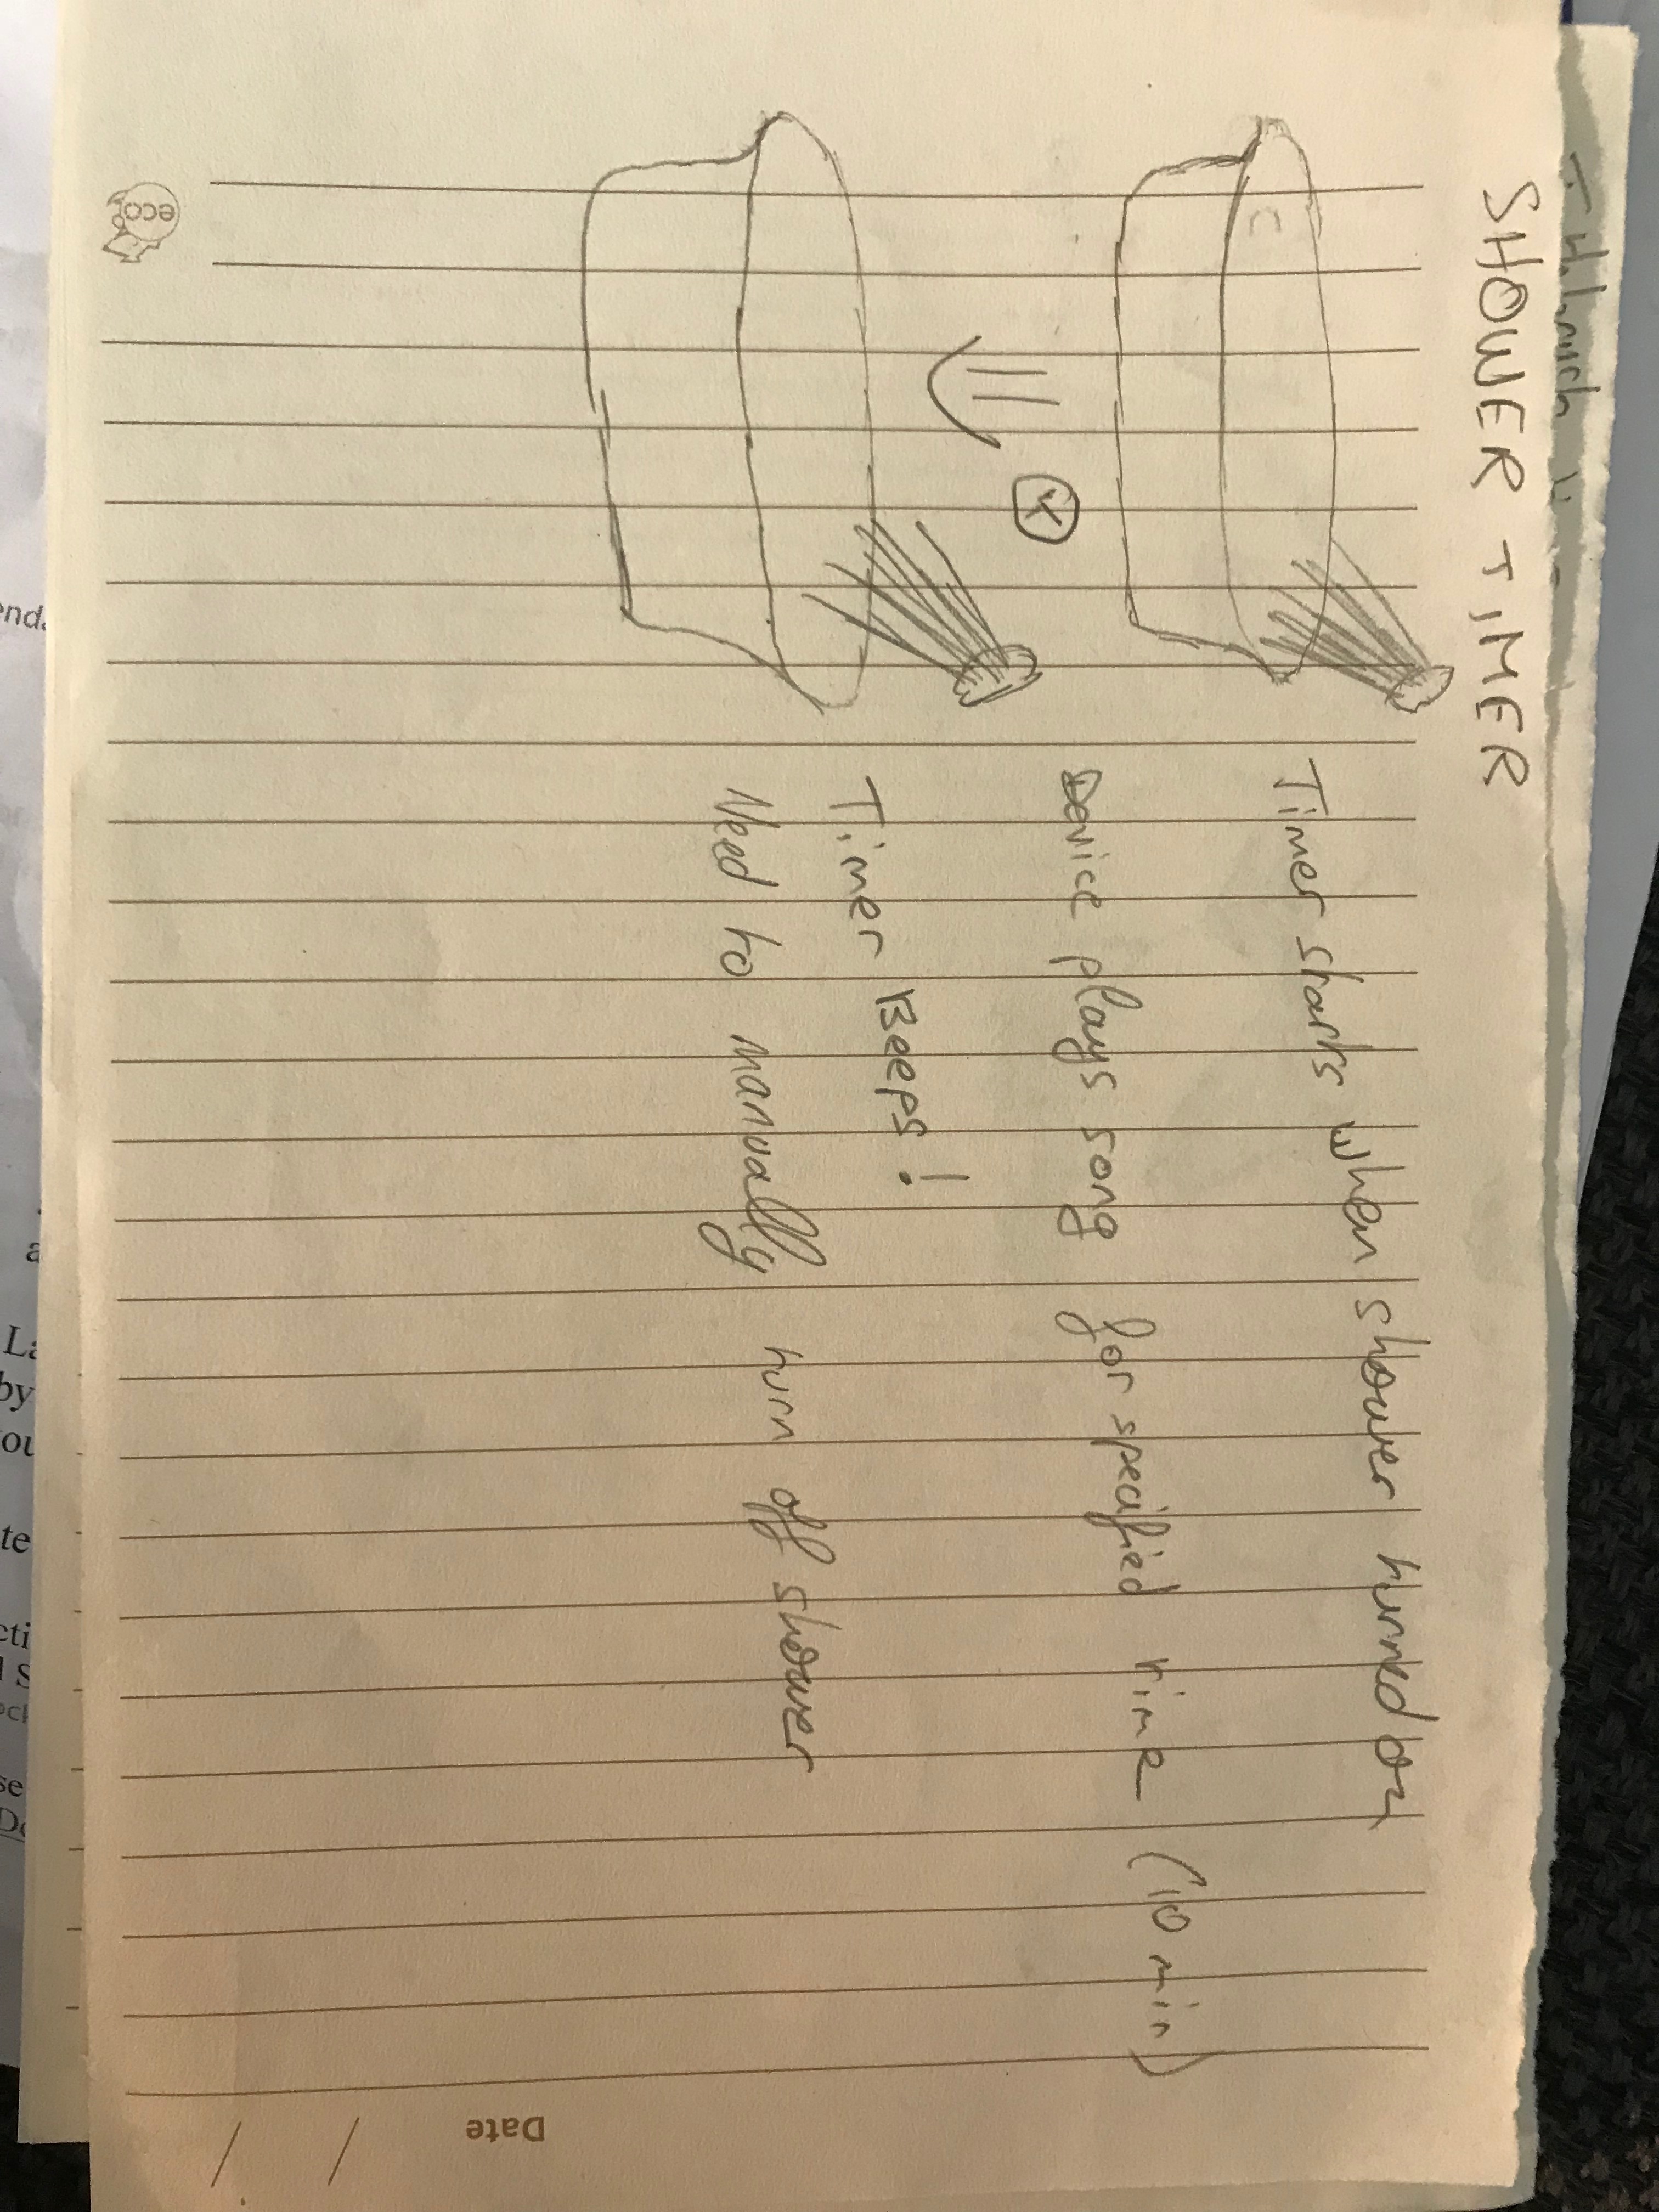 SHOWER TIMER
Timer starts when shower turned on
Device plays song for specified time (10 min)
Timer Beeps!
Need to manually turn off shower
eco
Date / /